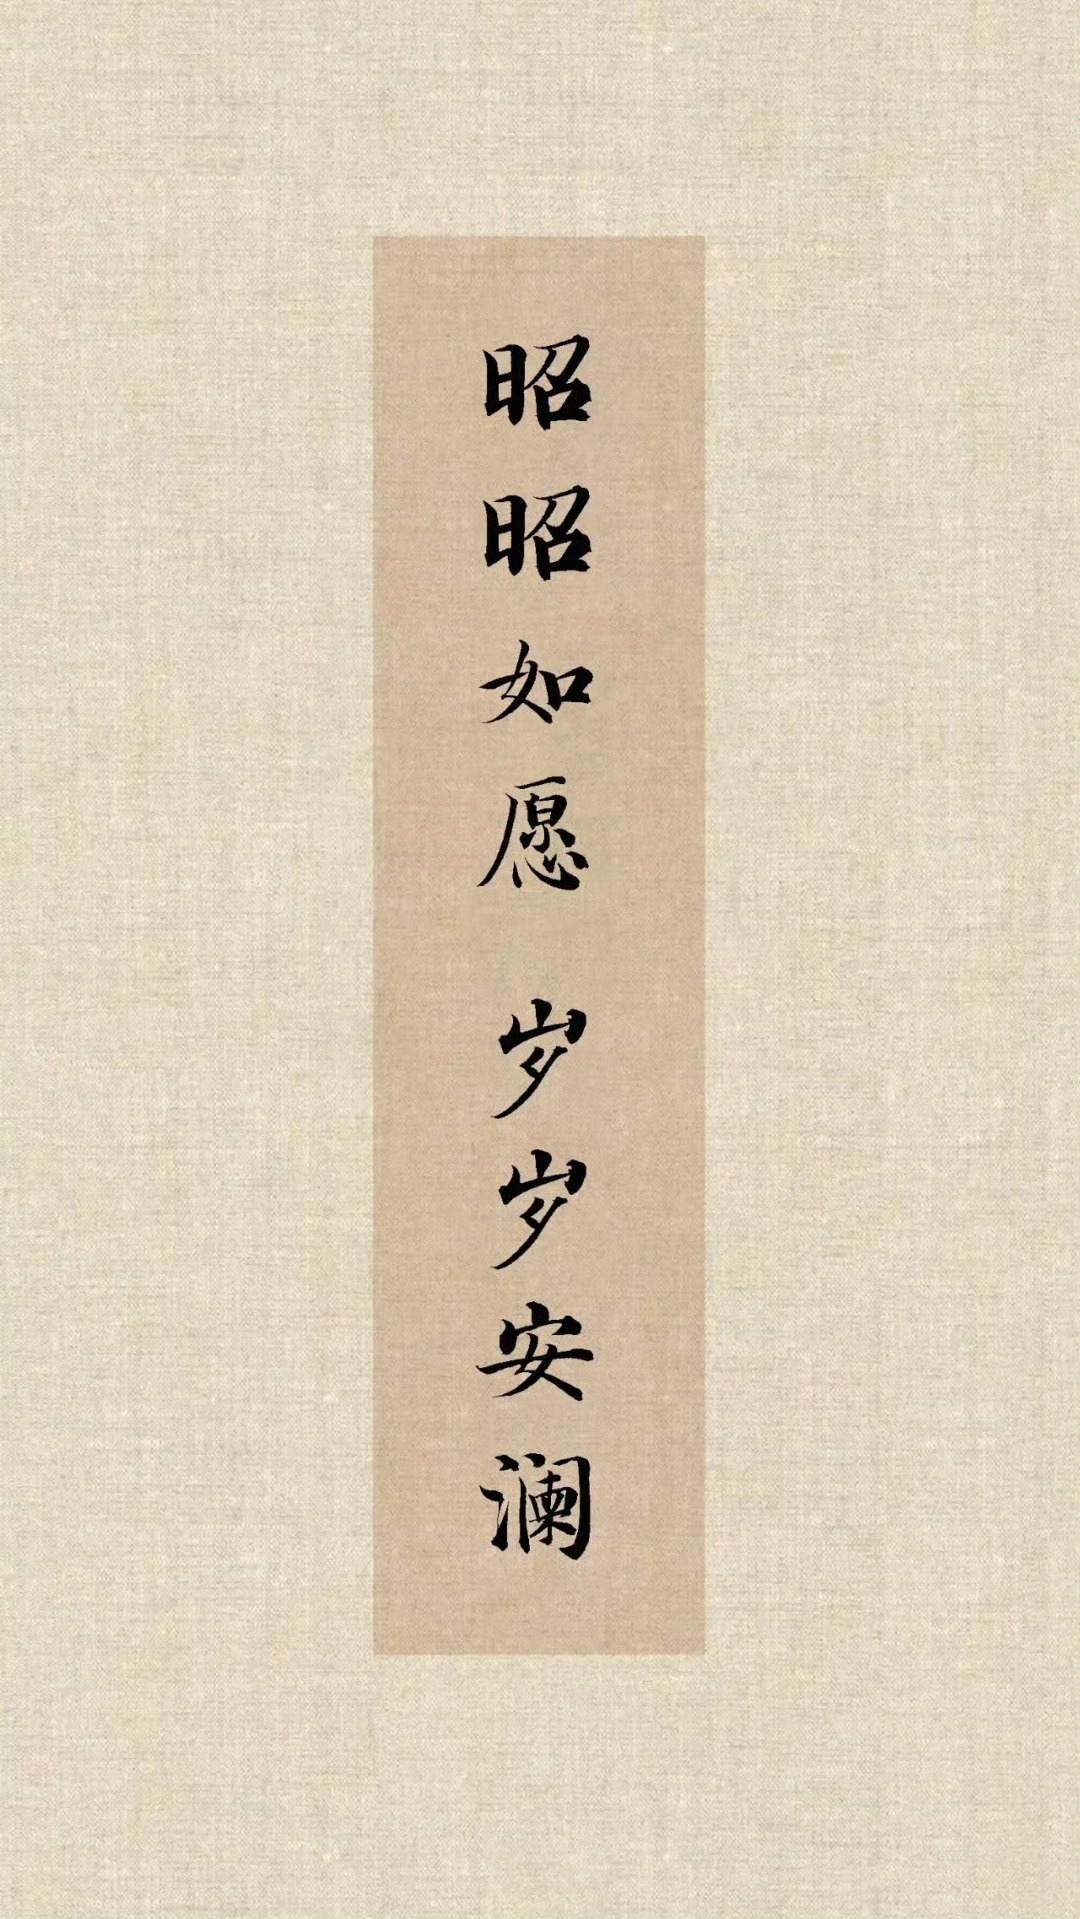 昭昭如愿 岁岁安澜